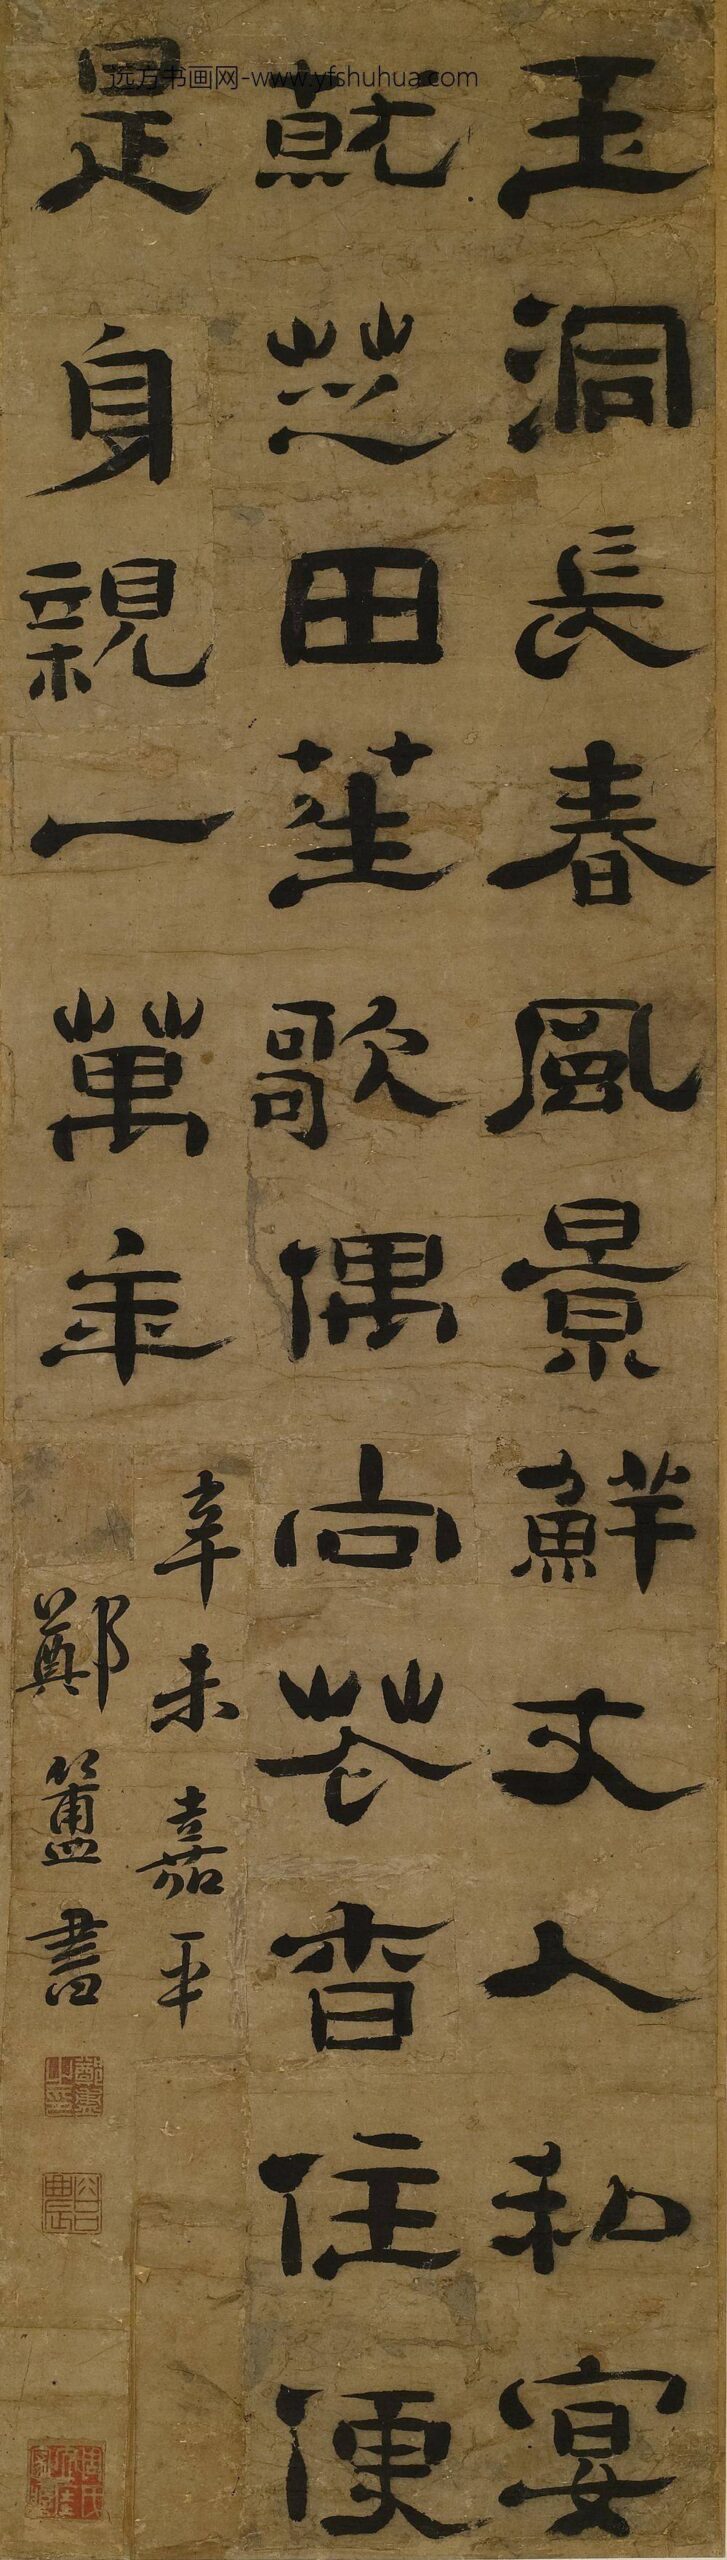 玉洞長春風景鮮丈人私宴
就芝田笙歌偶向花香住便
是身親一萬年
辛未嘉平
鄭簠書
远方书画网-www.yfshuhua.com